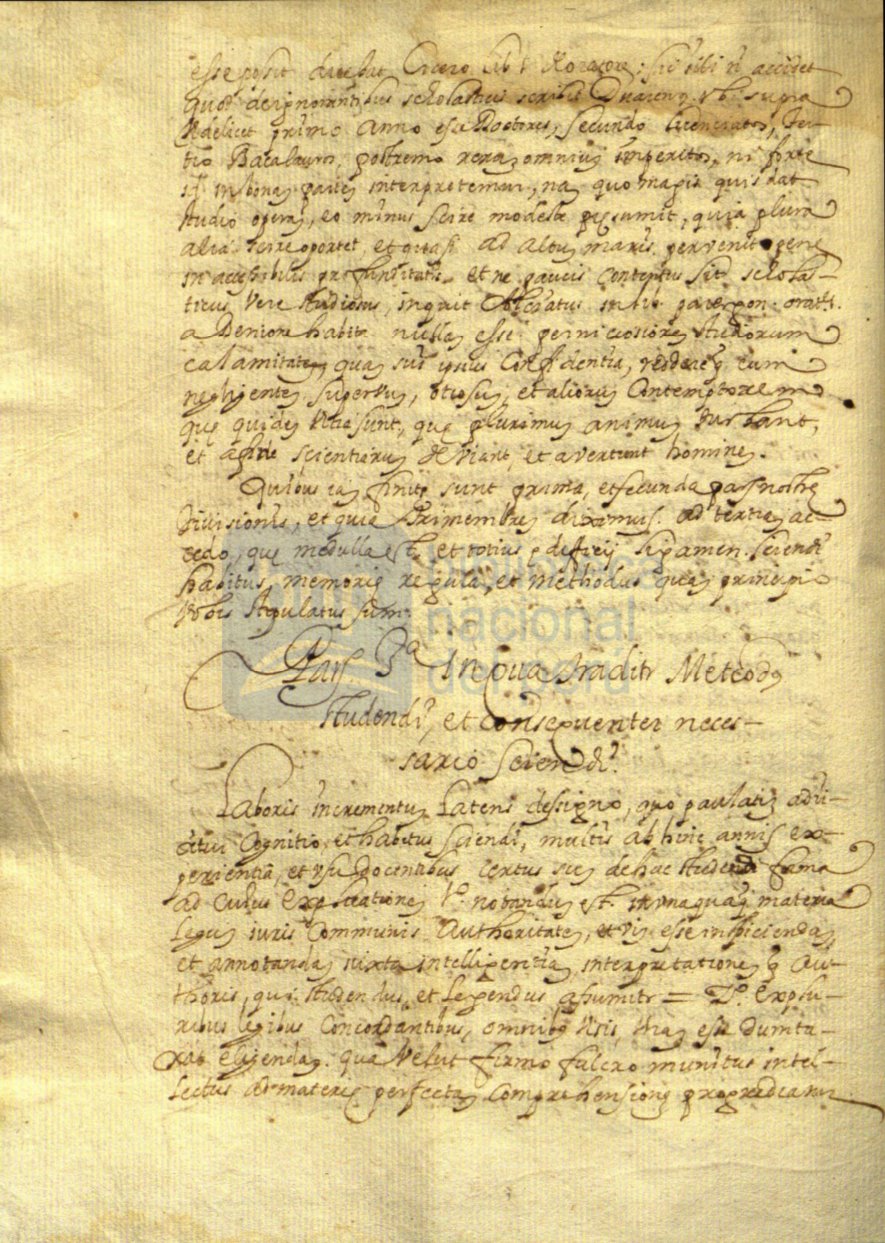 esse posit dicebat Cicero lib 1 : sic tibi n accidet
quod de ignorantibus scholasticis scribit Duareng vbi supra
Videlicet primo Anno esse Doctores, secundo licenciatos, ter-
tio Bacalauros, postremo vero omnium imperitos, ni forte
id in bonam partem interpretemur, nam quo magis quis dat
studio operam, eo minus scire modeste presumit, quia plura
alia scire oportet, et quasi ad altum maris pervenit pene
inaccessibilis profunditatis. et ne paucis contentus sit schola-
ticus vere studiosus, inquit
a habita nullam esse perniciosiorem studiorum
calamitatem quam sui ipsius confidentia, reddereq eum
negligentem superbum, otiosum, et aliorum Contemptorem
que quidem vitia sunt, que plurimum animum turbant,
et a fine scientiarum deviant, et avertunt hominem.
Quibus iam finita sunt prima, et secunda pars nostre
divisionis, et quia trimembrem diximus. ad tertiam ac-
cedo, que medulla est, et totius edificij . sciendi
habitus, memorie regula, et methodus quam principio
vobis stipulatus sum.
Pars 3a In qua traditr Metodg
studendi, et consequenter neces-
sario sciendi.
Laboris incrementum Latens dessigno, quo paulatim adqui-
ritur Cognitio, et habitus sciendi, multis ab hinc annis ex-
perientia, et vsu Docentibus certus sum de hac studendi forma
ad cuius explicationem 1o notandum est. in vnaquaq materia
Legum iuris Communis Authoritatem, et vim esse inspiciendam
et annotandam iuxta intelligentiam, interpretationem q Aut-
thoris, qui studendus, et Legendus assumitr = 2o Ex plu-
ribus legibus Concordantibus, omnibg visis, vnam esse dumta-
xat eligendam. qua velut firmo fulcro munitus intel-
lectus ad materie perfectam Comprehensionem progrediatur